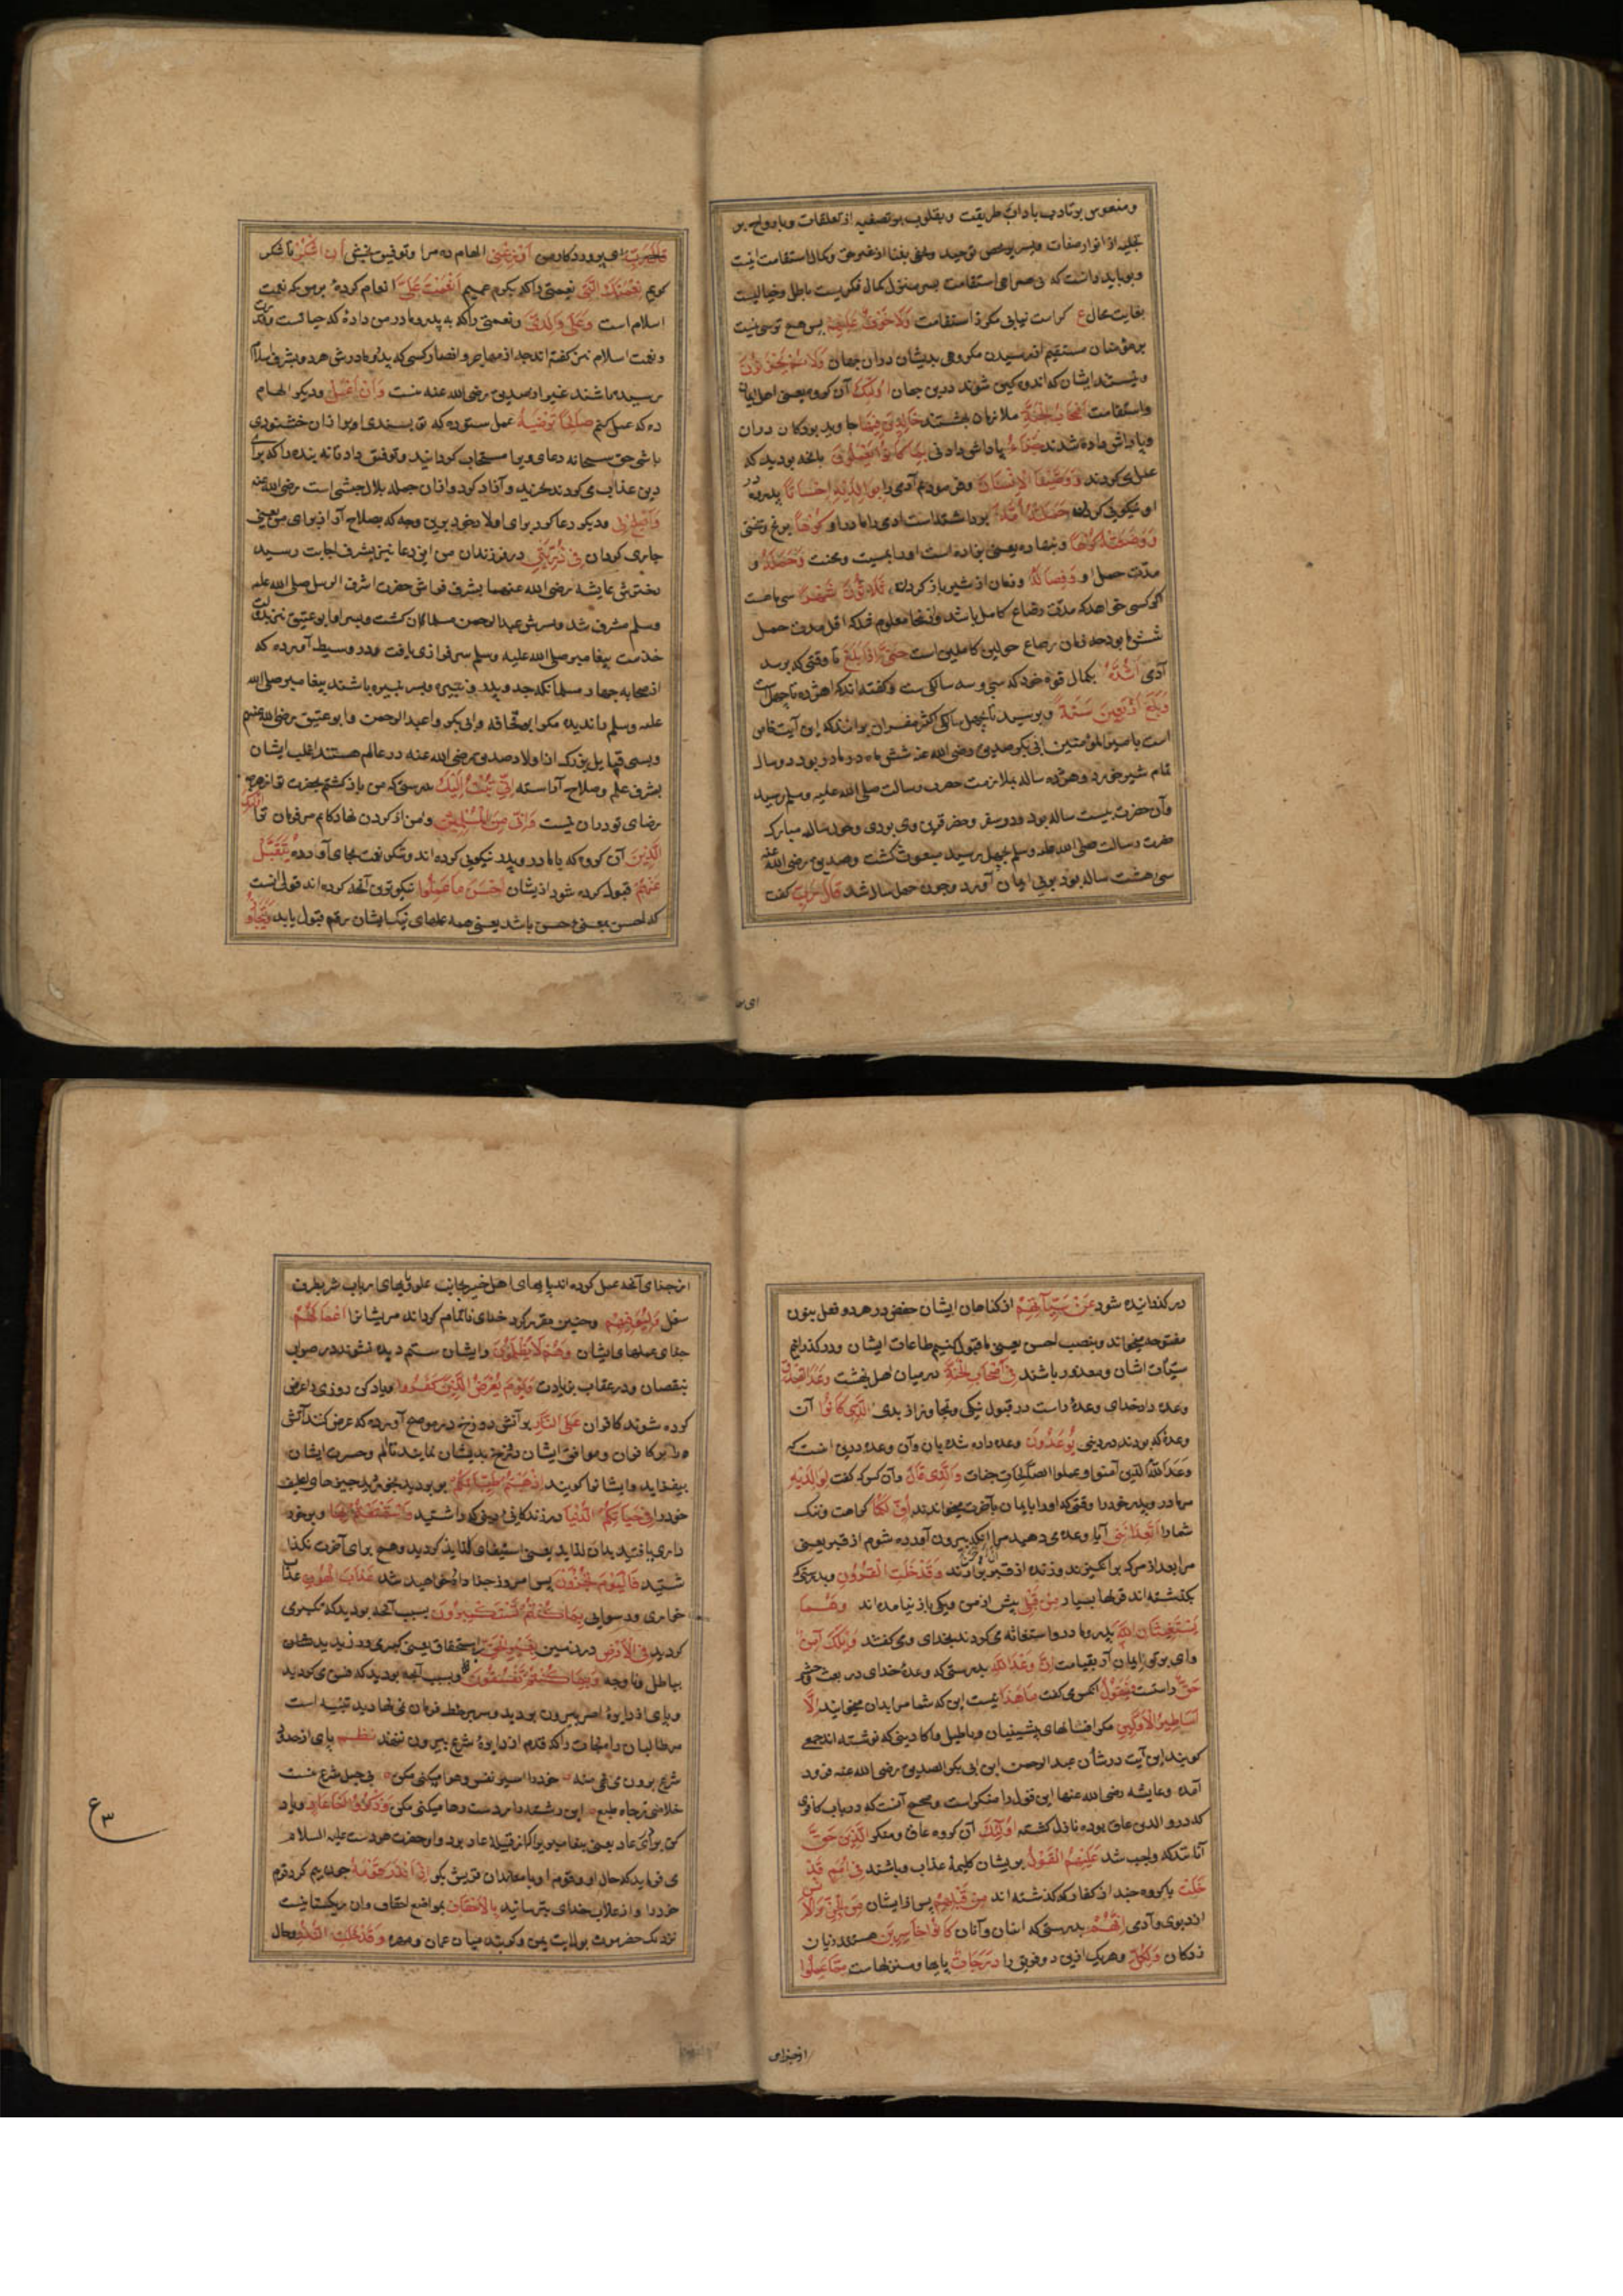 ونفوس بر تادب باداب طریقت وبقلوب بر تصفیه از تعلقات وبارواح بر
تجلیه از انوار صفات
وبباید دانست که بی صراحی استقامت بسر منزل کمال فکریست باطل وخیالیست
بغایت محال ع کراست نیابی مکر ز استقامت وَلَا خَوْفٌ عَلَيْهِمْ پس هیچ ترسی نیست
بر مؤمنان مستقیم از رسیدن مکروهی بدیشان دران جهان وَلَا هُمْ يَحْزَنُونَ
ونیستند ایشان که اندوهکین شوند درین جهان اُولٰئِكَ آن کروه یعنی اهل ایمان
واستقامت اَصْحَابُ الْجَنَّةِ ملازمان بهشتند خَالِدِينَ فِيهَا جاوید بودکان دران
وپاداش داده شدند جَزَاءً پاداش دادنی بِمَا كَانُوا يَعْمَلُونَ بانچه بودید که
عمل می کردند وَوَصَّيْنَا الْاِنْسَانَ وفرمودیم آدمی را بِوَالِدَيْهِ اِحْسَانًا بپدر ومادر
او نیکویی کردن حَمَلَتْهُ اُمُّهُ برداشته است ادمی را مادر او كُرْهًا برنج وسختی
وَوَضَعَتْهُ كُرْهًا وبنهاده یعنی بزاده است اورا بمشقت ومحنت وَحَمْلُهُ و
مدّت حمل او وَفِصَالُهُ وزمان از شیر باز کردن ثَلَاثُونَ شَهْرًا سی ماهست
اکر کسی خواهد که مدّت رضاع کامل باشد وازینجا معلوم شد که اقل مدت حمل
شش ماه بود چه زمان رضاع حولین کاملین است حَتّٰى اِذَا بَلَغَ تا وقتی که برسد
آدمی اَشُدَّهُ بکمال قوه خود که سی وسه سالکی ست وکفته اند که از هژده تا چهل است
وَبَلَغَ اَرْبَعِينَ سَنَةً وبرسد تا بچهل سالکی اکثر مفسران برانند که این آیت خاص
است بامیر المؤمنین ابی بکر صدیق رضی الله عنه شش ماه در مادر بود ودو سال
تمام شیر خورد وهژده ساله بملازمت حضرت رسالت صلی الله علیه وسلم رسید
وآن حضرت بیست ساله بود ودر سفر وحضر قرین وی بودی وچون سال مبارک
حضرت رسالت صلی الله علیه وسلم بچهل رسید مبعوث کشت وصدیق رضی الله عنه
سی وهشت ساله بود بوی ایمان آورد وچون چهل ساله شد قَالَ رَبِّ کفت
ای پرور
قَالَ رَبِّ ای پروردکار من اَوْزِعْنِى الهام ده مرا وتوفیق بخش اَنْ اَشْكُرَ تا شکر
کویم نِعْمَتَكَ الَّتِى نعمتی را که بکرم عمیم اَنْعَمْتَ عَلَىَّ انعام کردهٔ بر من که نعمت
اسلام است وَعَلٰى وَالِدَىَّ ونعمتی را که به پدر ومادر من دادهٔ که حیاتست وقدرت
ونعمت اسلام نیز کفته اند جز از مهاجر وانصار کسی که پدر ومادرش هردو بشرف اسلام
رسیده باشند غیر از صدیق رضی الله عنه نیست وَاَنْ اَعْمَلَ ودیکر الهام
ده که عمل کنم صَالِحًا تَرْضٰيهُ عمل ستوده که تو پسندی اورا وازان خشنودی
باشی حق سبحانه دعای ویرا مستجاب کردانید وتوفیق داد تا نه بنده را که برای
دین عذاب می کردند بخرید وآزاد کرد وازان جمله بلال حبشی است رضی الله عنه
وَاَصْلِحْ لِى ودیکر دعا کرد برای اولاد خود برین وجه که بصلاح آر از برای من یعنی
جاری کردان فِى ذُرِّيَّتِى در فرزندان من این دعا نیز بشرف اجابت رسید
دخترش عایشه رضی الله عنهما بشرف فراش حضرت اشرف الرسل صلی الله علیه
وسلم مشرف شد وپسرش عبد الرحمن مسلمان کشت وپسر او ابو عتیق نیز بدولت
خدمت پیغامبر صلی الله علیه وسلم سرفرازی یافت ودر وسیط آورده که
از صحابه چهار مسلمانکه جد وپدر وپسر ونبیره باشند پیغامبر صلی الله
علیه وسلم را ندیده مکر ابو قحافه وابی بکر وعبد الرحمن وابو عتیق رضی الله عنهم
وبسی قبایل بزرک از اولاد صدیق رضی الله عنه در عالم هستند اغلب ایشان
بشرف علم وصلاح آراسته اِنِّى تُبْتُ اِلَيْكَ بدرستی که من باز کشتم بحضرت تو از هرچه
رضای تو دران نیست وَاِنِّى مِنَ الْمُسْلِمِينَ ومن از کردن نهادکانم مر فرمان ترا اُولٰئِكَ
الَّذِينَ آن کروه که با مادر وپدر نیکویی کرده اند وشکر نعمت بجای آورده نَتَقَبَّلُ
عَنْهُمْ قبول کرده شود از یشان اَحْسَنَ مَا عَمِلُوا نیکوترین آنچه کرده اند قولی انست
که احسن بمعنی حسن باشد یعنی همه عملهای نیک ایشان رقم قبول یابد وَنَتَجَاوَزُ
در کذرانیده شود عَنْ سَيِّاٰتِهِمْ از کناهان ایشان حفص در هر دو فعل بنون
مفتوحه میخواند وبنصب احسن یعنی ما قبول کنیم طاعات ایشان ودر کذرانیم
سیّات ایشان ومعدود باشند فِى اَصْحَابِ الْجَنَّةِ در میان اهل بهشت وَعْدَ الصِّدْقِ
وعده داد خدای وعدهٔ راست در قبول نیکی وتجاوز از بدی الَّذِى كَانُوا آن
وعدهٔ که بودند در دنیا يُوعَدُونَ وعده داده شده بان وآن وعده درین است که
وعد الله الذین آمنوا وعملوا الصالحات جنات وَالَّذِى قَالَ وآن کس که کفت لِوَالِدَيْهِ
مر مادر وپدر خودرا وقتی که اورا بایمان بآخرت میخواندند اُفٍّ لَكُمَا کراهت وننک
شمارا اَتَعِدَانِنِى آیا وعده می دهید مرا اَنْ اُخْرَجَ آنکه بیرون آورده شوم از قبر یعنی
مرا بعد از مرک بر انکیزند وزنده از قبر برآرند وَقَدْ خَلَتِ الْقُرُونُ وبدرستی که
بکذشته اند قرنها بسیار مِنْ قَبْلِى پیش از من ویکی باز نیامده اند وَهُمَا
يَسْتَغِيثَانِ اللهَ پدر ومادر او استغاثه می کردند بخدای ومی کفتند وَيْلَكَ اٰمِنْ
وای بر تو ایمان آر بقیامت اِنَّ وَعْدَ اللهِ بدرستی که وعدهٔ خدای در بعث وحشر
حَقٌّ راستست فَيَقُولُ آنکس می کفت مَا هٰذَا نیست این که شما مرا بدان میخوانید اِلَّا
اَسَاطِيرُ الْاَوَّلِينَ مکر افسانهای پیشینیان وباطیل که نوشته اند جمعی
کویند این آیت در شأن عبد الرحمن ابن ابی بکر الصدیق رضی الله عنه فرود
آمده وعایشه رضی الله عنها این قول را منکر است وصحیح آنست که در باب کافری
که در والدین عاق بوده نازل کشته اُولٰئِكَ آن کروه عاق ومنکر الَّذِينَ حَقَّ
آنانند که واجب شد عَلَيْهِمُ الْقَوْلُ بریشان کلیمهٔ عذاب وباشند فِى اُمَمٍ قَدْ
خَلَتْ با کروه چند از کفار که کذشته اند مِنْ قَبْلِهِمْ پیش از ایشان مِنَ الْجِنِّ وَالْاِنْسِ
از پری وآدمی اِنَّهُمْ بدرستی که اینان وآنان كَانُوا خَاسِرِينَ هستند زیان
زدکان وَلِكُلٍّ وهر یک ازین دو فریق را دَرَجَاتٌ پایها ومنزلهاست مِمَّا عَمِلُوا
از جزای
از جزای آنچه عمل کرده اند پایهای اهل خیر بجانب علو وپایهای ارباب شر بطرف
سفل وَلِيُوَفِّيَهُمْ وچنین مقرر کرد خدای تا تمام کرداند مر یشانرا اَعْمَالَهُمْ
جزای عملهای ایشان وَهُمْ لَا يُظْلَمُونَ وایشان ستم دیده نشوند در ثواب
بنقصان ودر عقاب بزیادت وَيَوْمَ يُعْرَضُ الَّذِينَ كَفَرُوا ویاد کن روزی را که عرض
کرده شوند کافران عَلَى النَّارِ بر آتش دوزخ در موضح آورده که عرض کنند آتش
را بر کافران ومواقع ایشان در دوزخ بدیشان نمایند تا الم وحسرت ایشان
بیفزاید وایشانرا کویند اَذْهَبْتُمْ طَيِّبَاتِكُمْ ببردید وبخوردید چیزهای لطیف
خودرا فِى حَيَاتِكُمُ الدُّنْيَا در زندکانی دنیی که داشتید وَاسْتَمْتَعْتُمْ بِهَا وبر خور
داری یافتید بدان لذاید یعنی استیفای لذاید کردید وهیچ برای آخرت نکذا
شتید فَالْيَوْمَ تُجْزَوْنَ پس امروز جزا داده خواهید شد عَذَابَ الْهُونِ عذاب
خواری ورسوایی بِمَا كُنْتُمْ تَسْتَكْبِرُونَ بسبب آنچه بودید که تکبر می
کردید فِى الْاَرْضِ در زمین بِغَيْرِ الْحَقِّ بی استحقاق یعنی کبر می ورزیدید شان
بباطل وناوجه وَبِمَا كُنْتُمْ تَفْسُقُونَ وبسبب آنچه بودید که فسق می کردید
وپای از دایرهٔ امر بیرون بودید وسر بر خط فرمان نمی نهادید تنبیه است
مر طالبان را که قدم از دایرهٔ شرع بیرون ننهند نظم پای از حد
شرع برون می نهی منه خودرا اسیر نفس وهوا میکنی مکن بی حبل شرع نیست
خلاصی ز چاه طبع این رشته را ز دست رها میکنی مکن وَاذْكُرْ اَخَا عَادٍ ویاد
کن برادر عاد یعنی پیغامبر را که از قبیلهٔ عاد بود واو حضرت هودست علیه السلام
می فرماید که حال او وقوم او با معاندان قریش بکو اِذْ اَنْذَرَ قَوْمَهُ چون بیم کرد قوم
خودرا واز عذاب خدای بترسانید بِالْاَحْقَافِ بمواضع احقاف وان ریکستانیست
نزدیک حضرموت بولایت یمن وکویند میان عمان ومهره وَقَدْ خَلَتِ النُّذُرُ وحال
ع ٣